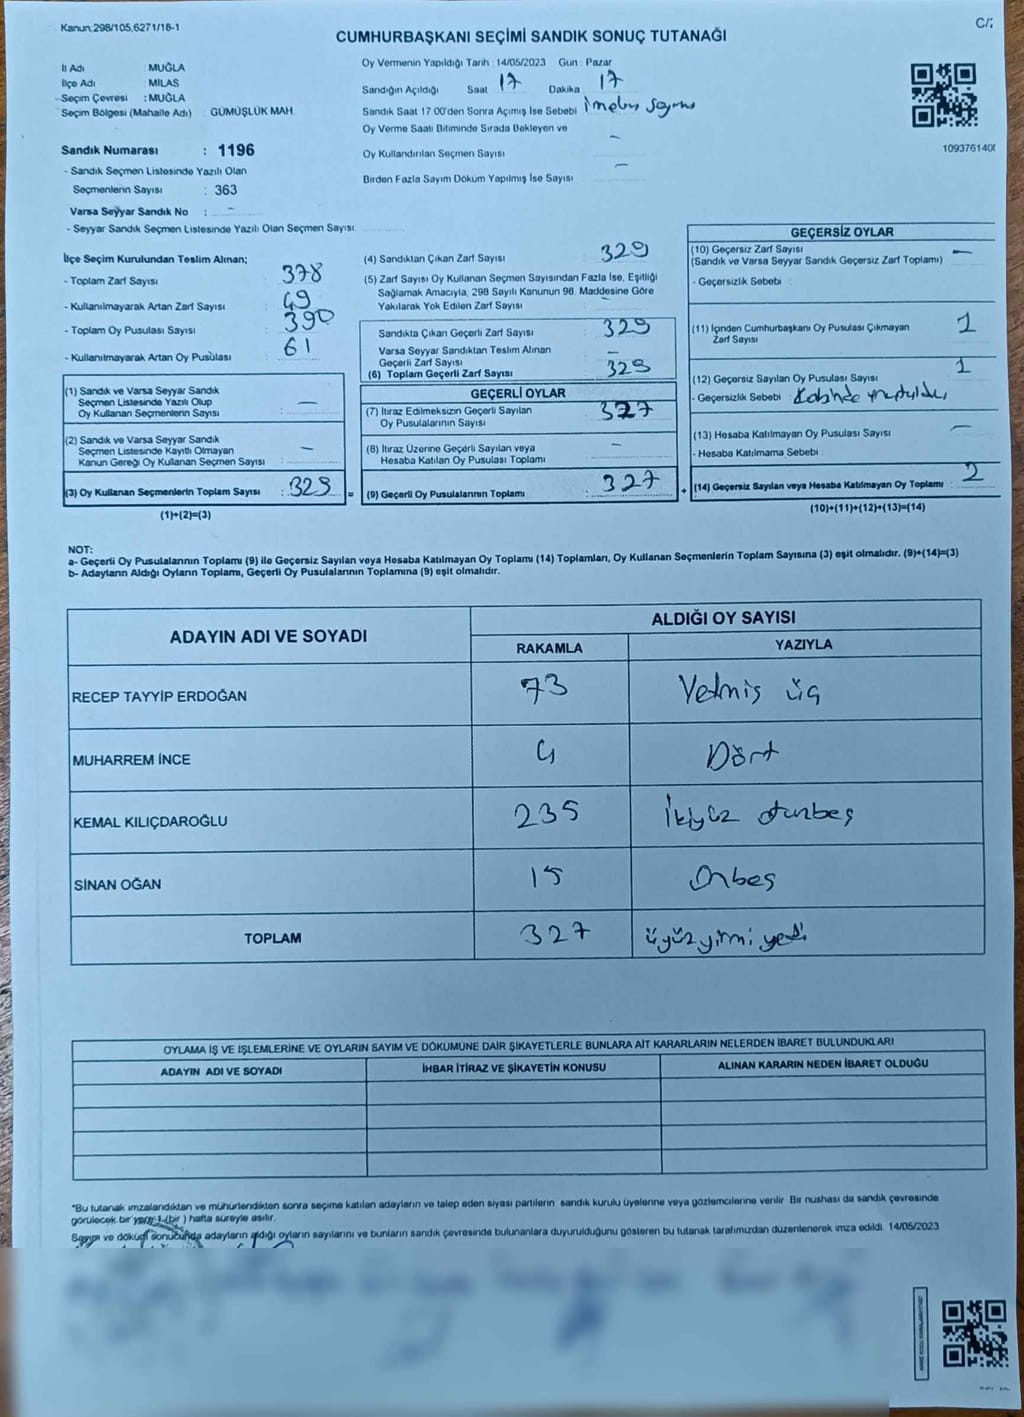 Kanun,298/105,6271/18-1
C/2
CUMHURBAŞKANI SEÇİMİ SANDIK SONUÇ TUTANAĞI
İl Adı : MUĞLA
İlçe Adı : MİLAS
Seçim Çevresi : MUĞLA
Seçim Bölgesi (Mahalle Adı) : GÜMÜŞLÜK MAH
Sandık Numarası : 1196
- Sandık Seçmen Listesinde Yazılı Olan
Seçmenlerin Sayısı : 363
Varsa Seyyar Sandık No : -
- Seyyar Sandık Seçmen Listesinde Yazılı Olan Seçmen Sayısı:
Oy Vermenin Yapıldığı Tarih : 14/05/2023 Gün : Pazar
Sandığın Açıldığı Saat 17 Dakika 17
Sandık Saat 17.00'den Sonra Açımış İse Sebebi
Oy Verme Saati Bitiminde Sırada Bekleyen ve
Oy Kullandırılan Seçmen Sayısı -
Birden Fazla Sayım Döküm Yapılmış İse Sayısı -
109376140
İlçe Seçim Kurulundan Teslim Alınan;
- Toplam Zarf Sayısı : 378
- Kullanılmayarak Artan Zarf Sayısı : 49
- Toplam Oy Pusulası Sayısı : 390
- Kullanılmayarak Artan Oy Pusulası : 61
(1) Sandık ve Varsa Seyyar Sandık
Seçmen Listesinde Yazılı Olup
Oy Kullanan Seçmenlerin Sayısı : -
(2) Sandık ve Varsa Seyyar Sandık
Seçmen Listesinde Kayıtlı Olmayan
Kanun Gereği Oy Kullanan Seçmen Sayısı : -
(3) Oy Kullanan Seçmenlerin Toplam Sayısı : 329 =
(1)+(2)=(3)
(4) Sandıktan Çıkan Zarf Sayısı 329
(5) Zarf Sayısı Oy Kullanan Seçmen Sayısından Fazla İse, Eşitliği
Sağlamak Amacıyla, 298 Sayılı Kanunun 98. Maddesine Göre
Yakılarak Yok Edilen Zarf Sayısı
Sandıkta Çıkan Geçerli Zarf Sayısı 329
Varsa Seyyar Sandıktan Teslim Alınan
Geçerli Zarf Sayısı -
(6) Toplam Geçerli Zarf Sayısı 329
GEÇERLİ OYLAR
(7) İtiraz Edilmeksizin Geçerli Sayılan
Oy Pusulalarının Sayısı 327
(8) İtiraz Üzerine Geçerli Sayılan veya
Hesaba Katılan Oy Pusulası Toplamı -
(9) Geçerli Oy Pusulalarının Toplamı 327 +
GEÇERSİZ OYLAR
(10) Geçersiz Zarf Sayısı -
(Sandık ve Varsa Seyyar Sandık Geçersiz Zarf Toplamı)
- Geçersizlik Sebebi :
(11) İçinden Cumhurbaşkanı Oy Pusulası Çıkmayan
Zarf Sayısı 1
(12) Geçersiz Sayılan Oy Pusulası Sayısı 1
- Geçersizlik Sebebi : Kabinde unutuldu
(13) Hesaba Katılmayan Oy Pusulası Sayısı -
- Hesaba Katılmama Sebebi :
(14) Geçersiz Sayılan veya Hesaba Katılmayan Oy Toplamı : 2
(10)+(11)+(12)+(13)=(14)
NOT:
a- Geçerli Oy Pusulalarının Toplamı (9) ile Geçersiz Sayılan veya Hesaba Katılmayan Oy Toplamı (14) Toplamları, Oy Kullanan Seçmenlerin Toplam Sayısına (3) eşit olmalıdır. (9)+(14)=(3)
b- Adayların Aldığı Oyların Toplamı, Geçerli Oy Pusulalarının Toplamına (9) eşit olmalıdır.
ADAYIN ADI VE SOYADI
ALDIĞI OY SAYISI
RAKAMLA YAZIYLA
RECEP TAYYİP ERDOĞAN 73 Yetmiş üç
MUHARREM İNCE 4 Dört
KEMAL KILIÇDAROĞLU 235 İkiyüz otuzbeş
SİNAN OĞAN 15 Onbeş
TOPLAM 327 üçyüz yirmi yedi
OYLAMA İŞ VE İŞLEMLERİNE VE OYLARIN SAYIM VE DÖKÜMÜNE DAİR ŞİKAYETLERLE BUNLARA AİT KARARLARIN NELERDEN İBARET BULUNDUKLARI
ADAYIN ADI VE SOYADI İHBAR İTİRAZ VE ŞİKAYETİN KONUSU ALINAN KARARIN NEDEN İBARET OLDUĞU
*Bu tutanak imzalandıktan ve mühürlendikten sonra seçime katılan adayların ve talep eden siyasi partilerin sandık kurulu üyelerine veya gözlemcilerine verilir Bir nushası da sandık çevresinde
görülecek bir yere 1 (bir ) hafta süreyle asılır.
Sayım ve döküm sonucunda adayların aldığı oyların sayılarını ve bunların sandık çevresinde bulunanlara duyurulduğunu gösteren bu tutanak tarafımızdan düzenlenerek imza edildi. 14/05/2023